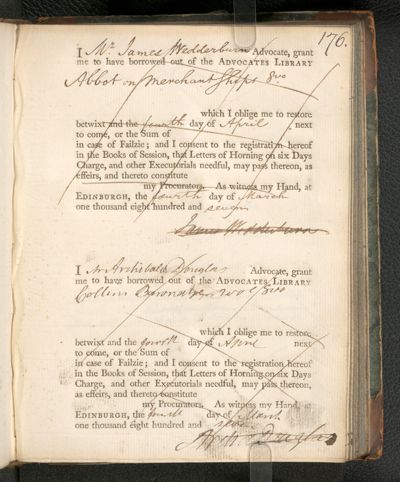 176.
I Mr. James Wedderburn Advocate, grant
me to have borrowed out of the ADVOCATES LIBRARY
Abbot on Merchant Ships 8vo
which I oblige me to restore
betwixt and the fourth day of April next
to come, or the Sum of
in case of Failzie; and I consent to the registration hereof
in the Books of Session, that Letters of Horning on six Days
Charge, and other Executorials needful, may pass thereon, as
effeirs, and thereto constitute
my Procurators. As witness my Hand, at
EDINBURGH, the fourth day of March
one thousand eight hundred and seven
James Wedderburn
I Mr Archibald Douglas Advocate, grant
me to have borrowed out of the ADVOCATES LIBRARY
Collins 8vo
which I oblige me to restore
betwixt and the fourth day of April next
to come, or the Sum of
in case of Failzie; and I consent to the registration hereof
in the Books of Session, that Letters of Horning on six Days
Charge, and other Executorials needful, may pass thereon,
as effeirs, and thereto constitute
my Procurators. As witness my Hand, at
EDINBURGH, the fourth day of March
one thousand eight hundred and seven
Archd. Douglas